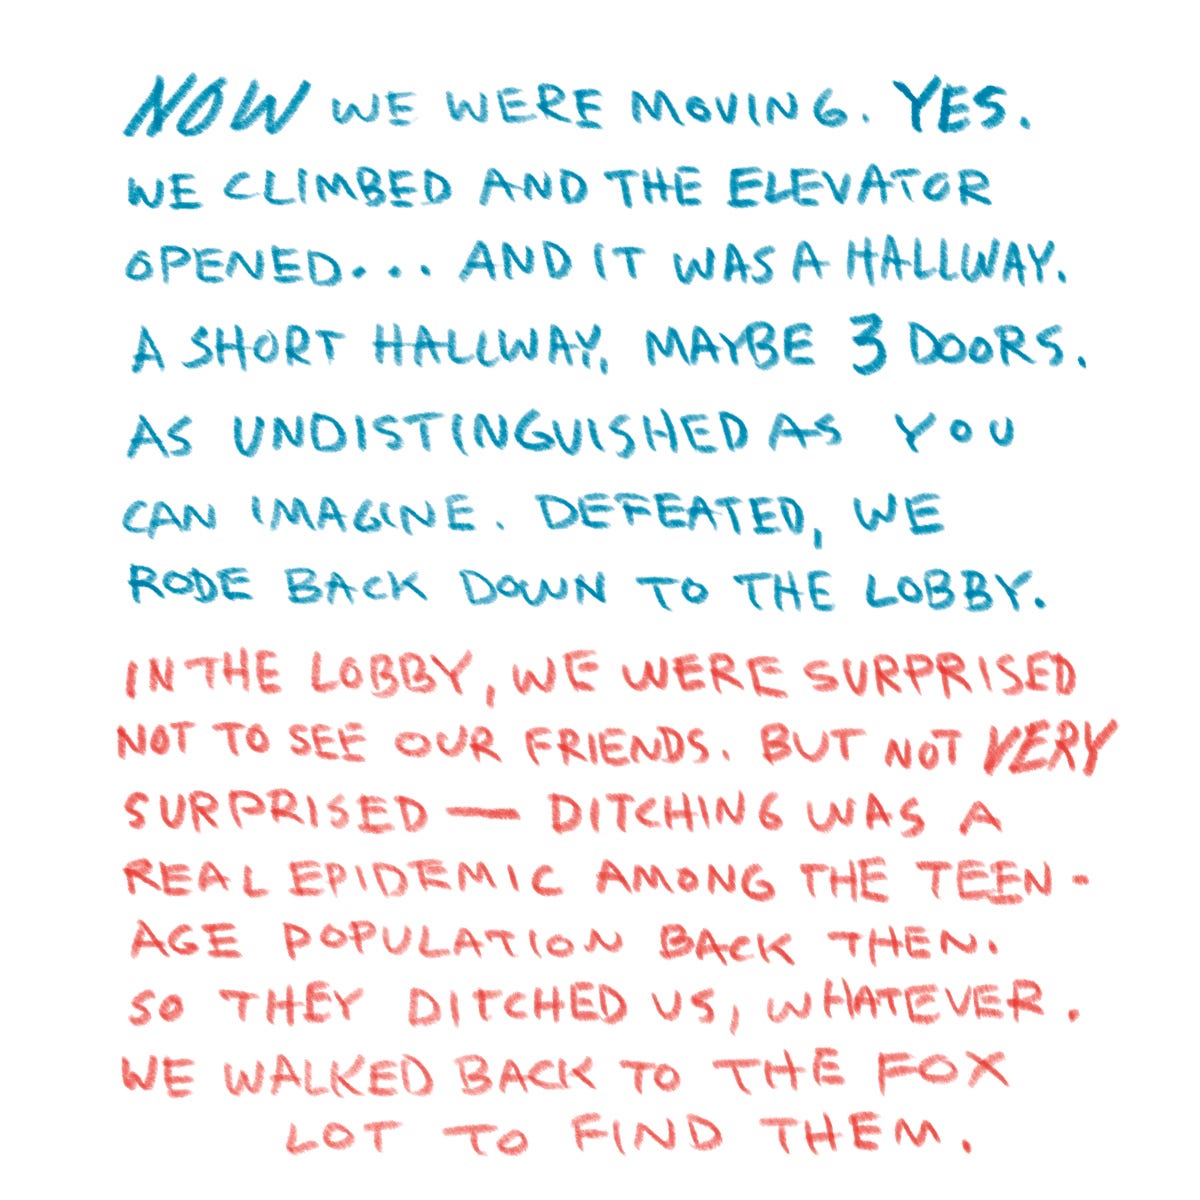 NOW WE WERE MOVING. YES.
WE CLIMBED AND THE ELEVATOR
OPENED... AND IT WAS A HALLWAY.
A SHORT HALLWAY, MAYBE 3 DOORS.
AS UNDISTINGUISHED AS YOU
CAN IMAGINE. DEFEATED, WE
RODE BACK DOWN TO THE LOBBY.
IN THE LOBBY, WE WERE SURPRISED
NOT TO SEE OUR FRIENDS. BUT NOT VERY
SURPRISED — DITCHING WAS A
REAL EPIDEMIC AMONG THE TEEN-
AGE POPULATION BACK THEN.
SO THEY DITCHED US, WHATEVER.
WE WALKED BACK TO THE FOX
LOT TO FIND THEM.